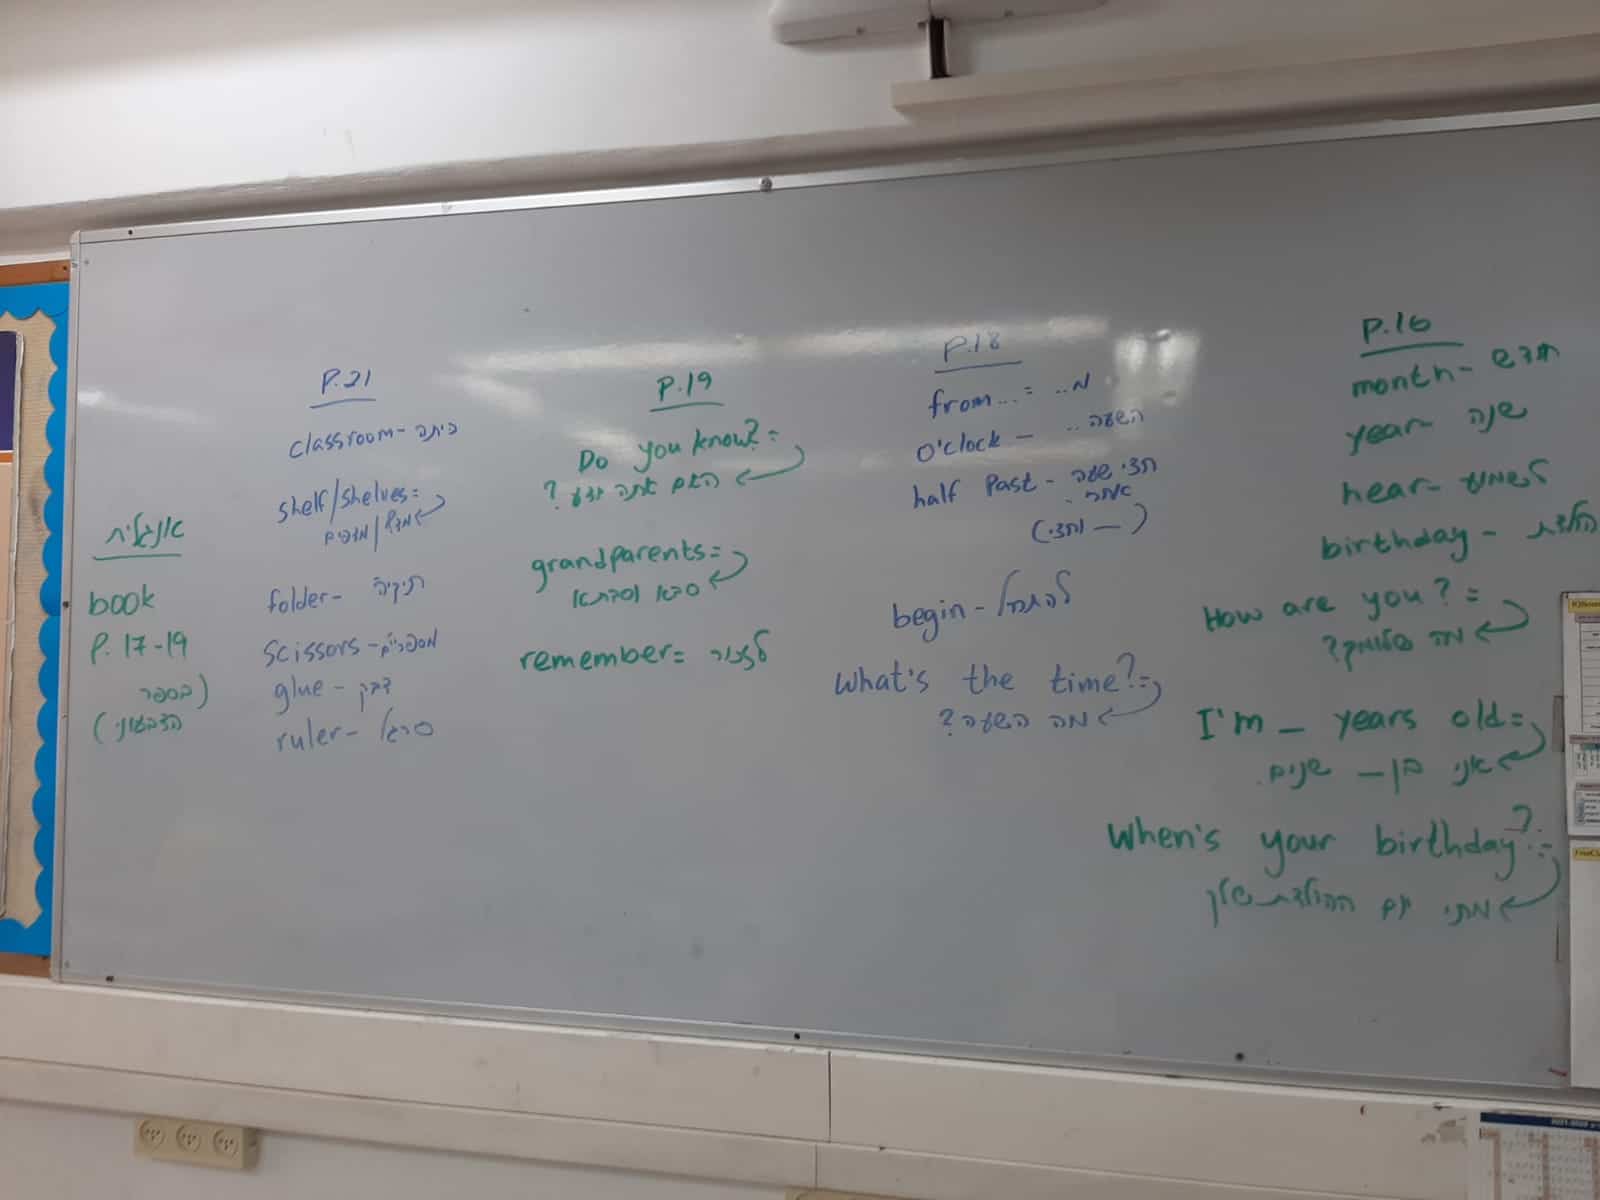 P.16
month- חודש
year- שנה
hear- לשמוע
birthday - הולדת
How are you? =
מה שלומך?
I'm _ years old=
אני בן — שנים.
When's your birthday?=
מתי יום ההולדת שלך
P.18
from...= מ..
O'clock - השעה..
half Past - חצי שעה
אחרי.
(— וחצי)
begin - להתחיל
What's the time?=
מה השעה?
P.19
Do you know?=
האם אתה יודע?
grandparents=
סבא וסבתא
remember= לזכור
P.21
classroom- כיתה
shelf/shelves=
מדף/מדפים
folder- תיקיה
Scissors- מספריים
glue - דבק
ruler- סרגל
אנגלית
book
P. 17-19
(בספר
הצבעוני)